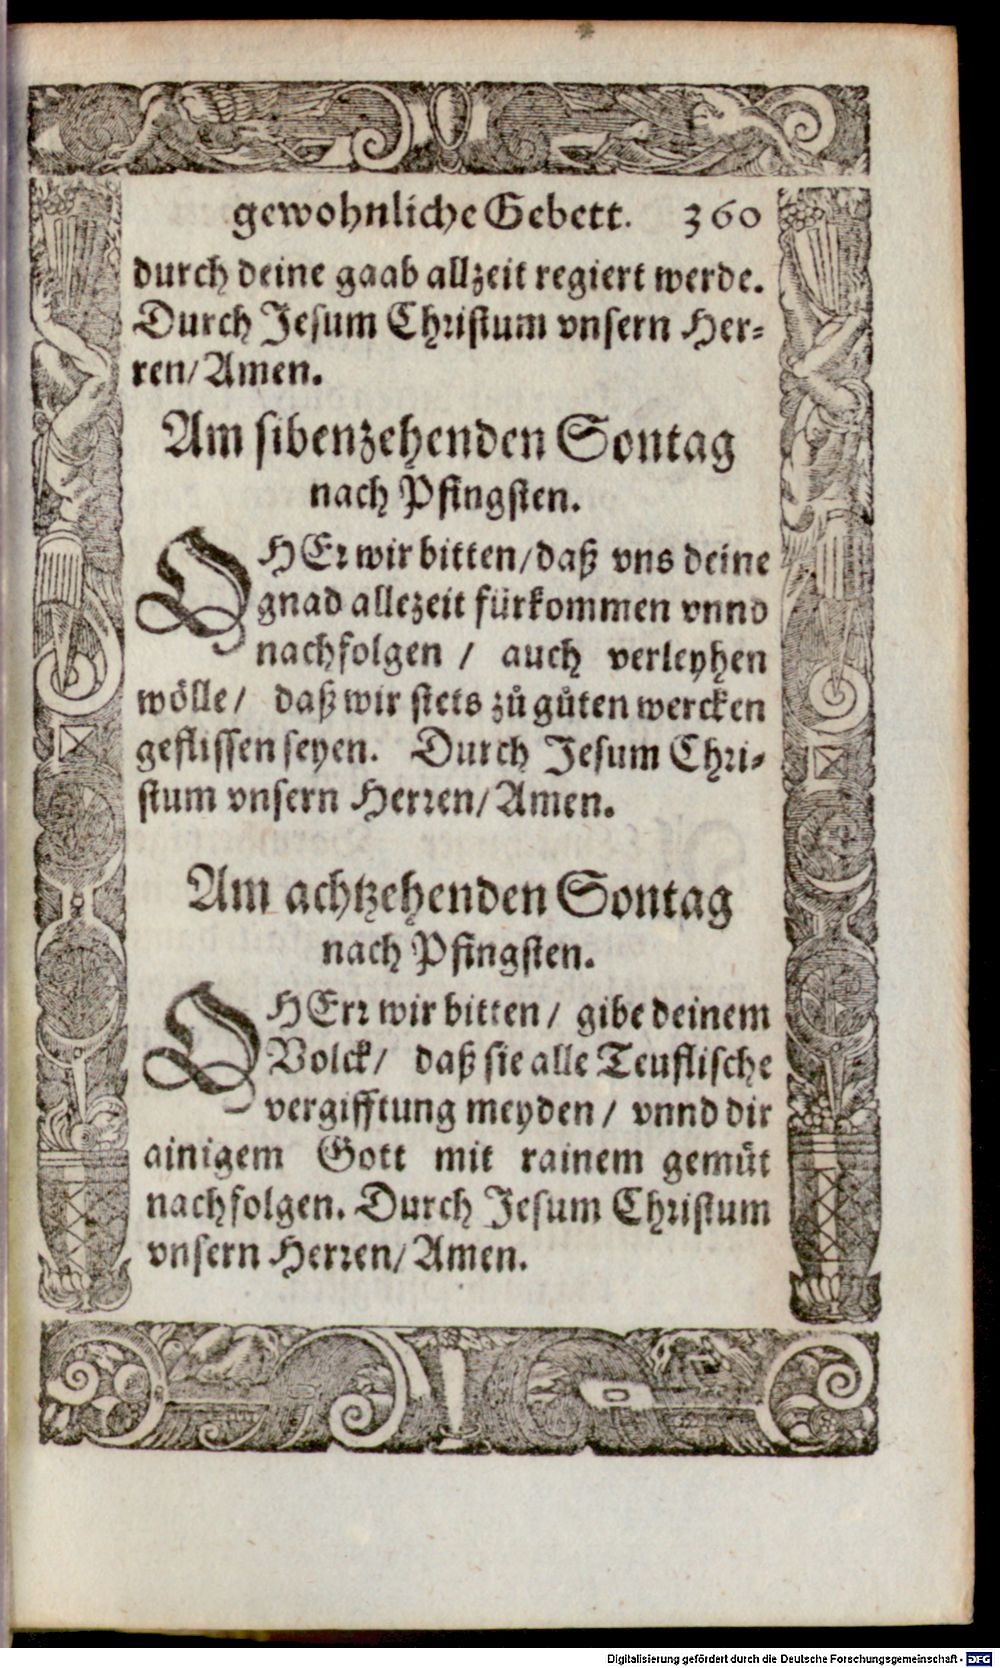 gewohnliche Gebett. 360
durch deine gaab allzeit regiert werde.
Durch Jesum Christum vnsern Her-
ren/ Amen.
Am sibenzehenden Sontag
nach Pfingsten.
O HErr wir bitten/ daß vns deine
gnad allezeit fürkommen vnnd
nachfolgen / auch verleyhen
wölle / daß wir stets zů gůten wercken
geflissen seyen. Durch Jesum Chri-
stum vnsern Herren/ Amen.
Am achtzehenden Sontag
nach Pfingsten.
O HErr wir bitten / gibe deinem
Volck / daß sie alle Teuflische
vergifftung meyden / vnnd dir
ainigem Gott mit rainem gemüt
nachfolgen. Durch Jesum Christum
vnsern Herren/ Amen.
Digitalisierung gefördert durch die Deutsche Forschungsgemeinschaft - DFG